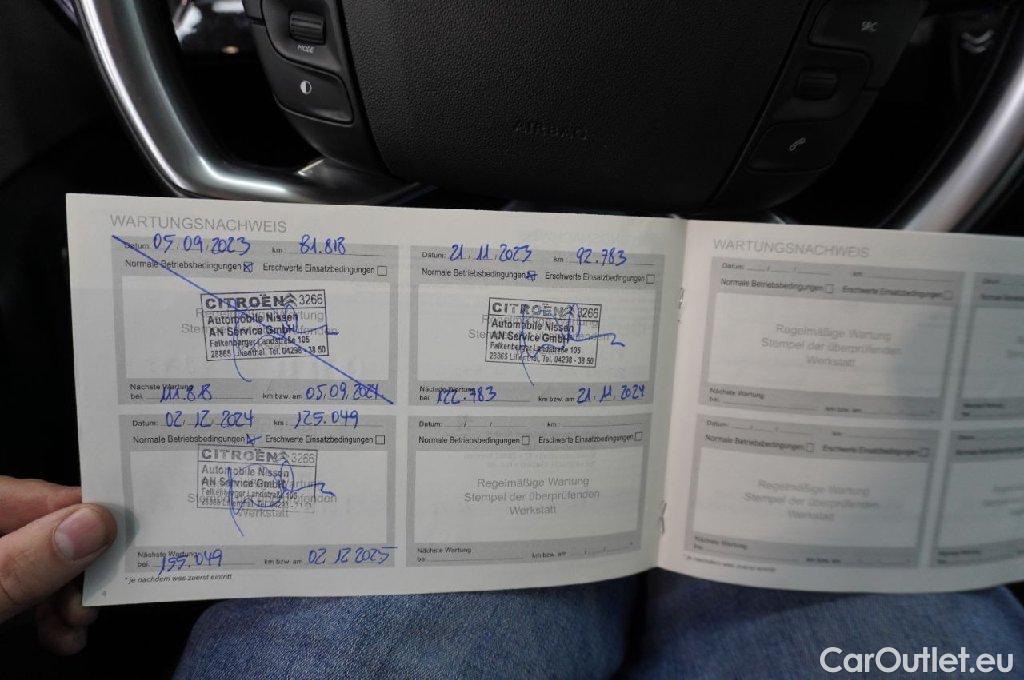 MODE
SRC
AIRBAG
WARTUNGSNACHWEIS
Datum: 05.09.2023 km: 81.818
Normale Betriebsbedingungen Erschwerte Einsatzbedingungen
CITROËN 3266
Automobile Nissen
AN Service GmbH
Falkenberger Landstraße 105
28865 Lilienthal, Tel. 04298 - 38 50
Nächste Wartung
bei: 111.818 km bzw. am 05.09.2024
Datum: 21.11.2023 km: 92.783
Normale Betriebsbedingungen Erschwerte Einsatzbedingungen
CITROËN 3266
Automobile Nissen
AN Service GmbH
Falkenberger Landstraße 105
28865 Lilienthal, Tel. 04298 - 38 50
Nächste Wartung
bei: 122.783 km bzw. am 21.11.2024
Datum: 02.12.2024 km: 125.049
Normale Betriebsbedingungen Erschwerte Einsatzbedingungen
CITROËN 3266
Automobile Nissen
AN Service GmbH
Falkenberger Landstraße 105
Werkstatt
Nächste Wartung
bei: 155.049 km bzw. am 02.12.2025
Datum: / / km:
Normale Betriebsbedingungen Erschwerte Einsatzbedingungen
Regelmäßige Wartung
Stempel der überprüfenden
Werkstatt
Nächste Wartung
bei: km bzw. am / /
* je nachdem was zuerst eintritt
4
WARTUNGSNACHWEIS
Datum: / / km:
Normale Betriebsbedingungen Erschwerte Einsatzbedingungen
Regelmäßige Wartung
Stempel der überprüfenden
Werkstatt
Nächste Wartung
bei: km bzw. am
Datum: / / km:
Normale Betriebsbedingungen Erschwerte Einsatzbedingungen
Regelmäßige Wartung
Stempel der überprüfenden
Werkstatt
Nächste Wartung
bei: km bzw. am
* je nachdem was zuerst eintritt
CarOutlet.eu